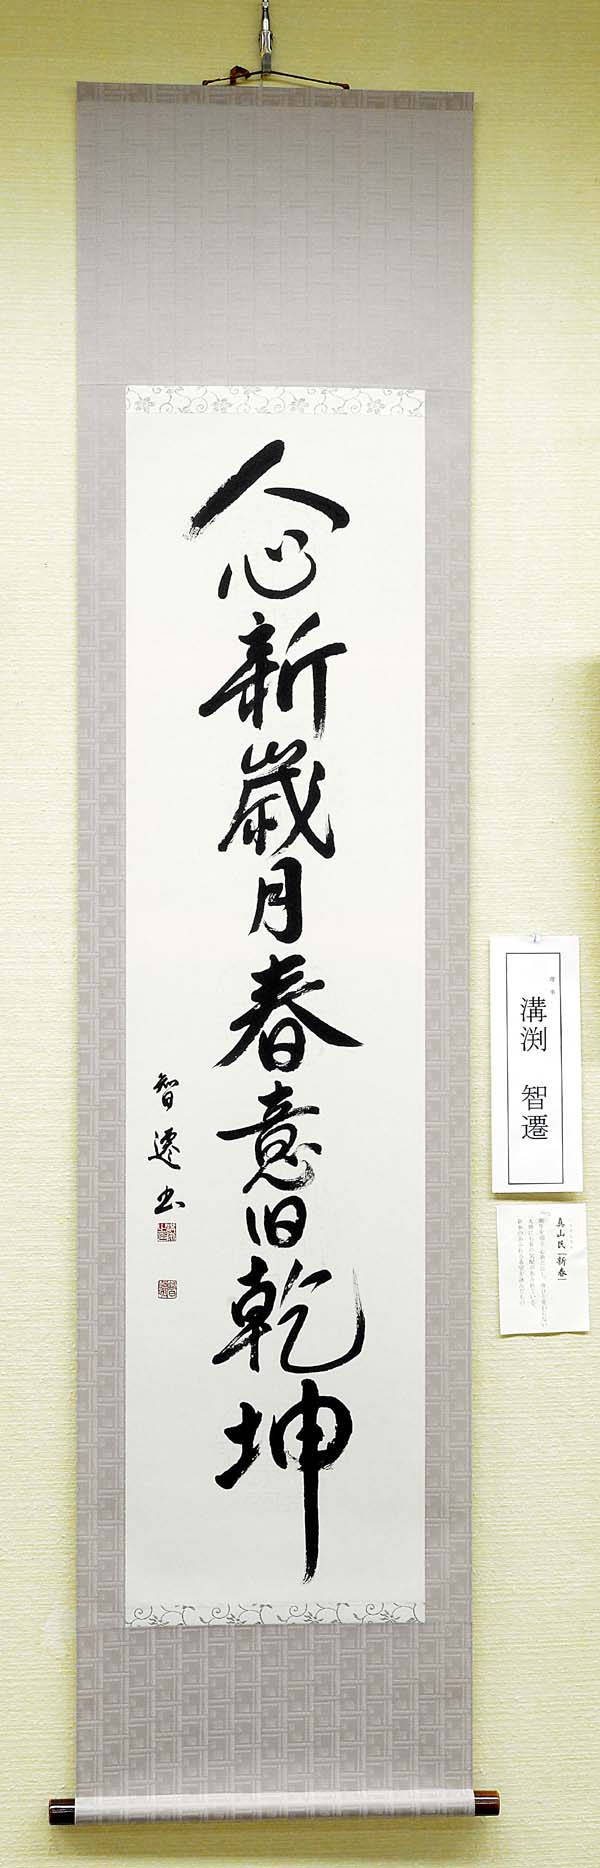 人心新歳月春意旧乾坤
智遷書
理事
溝渕 智遷
真山民「新春」